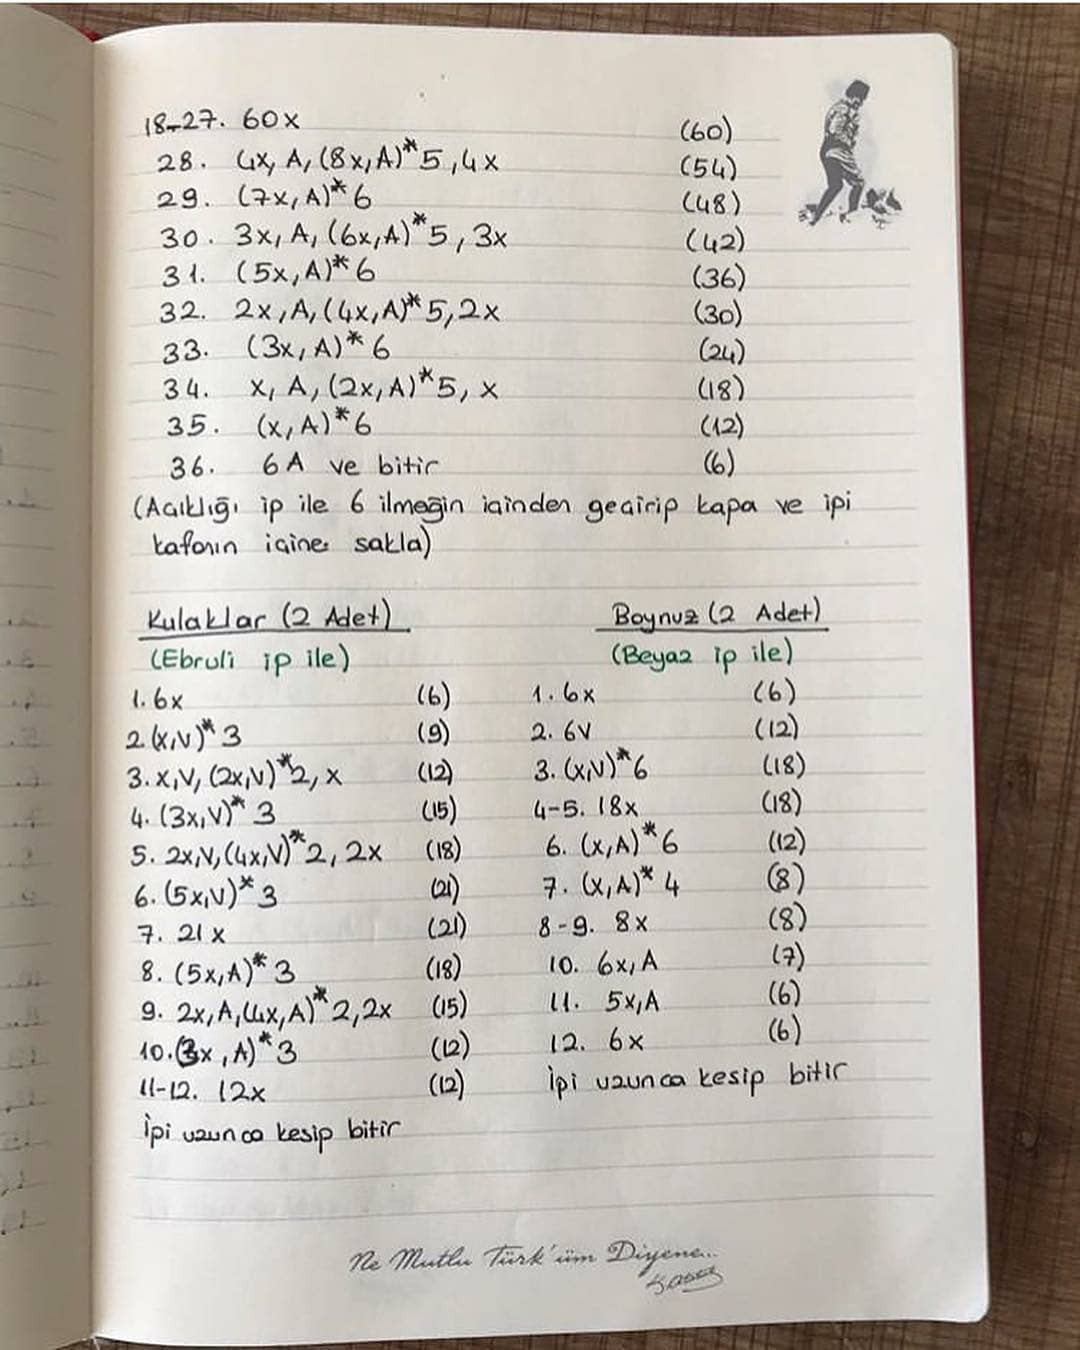 18-27. 60x (60)
28. 4x, A, (8x,A)*5, 4x (54)
29. (7x, A)*6 (48)
30. 3x, A, (6x,A)*5, 3x (42)
31. (5x,A)*6 (36)
32. 2x, A, (4x,A)*5, 2x (30)
33. (3x, A)*6 (24)
34. x, A, (2x, A)*5, x (18)
35. (x,A)*6 (12)
36. 6A ve bitir (6)
(Açıklığı ip ile 6 ilmeğin içinden geçirip kapa ve ipi
kafanın içine sakla)
Kulaklar (2 Adet)
(Ebruli ip ile)
1. 6x (6)
2. (x,V)*3 (9)
3. x,V, (2x,V)*2, x (12)
4. (3x,V)*3 (15)
5. 2x,V,(4x,V)*2, 2x (18)
6. (5x,V)*3 (21)
7. 21x (21)
8. (5x,A)*3 (18)
9. 2x,A,(4x,A)*2,2x (15)
10. (3x,A)*3 (12)
11-12. 12x (12)
İpi uzunca kesip bitir
Boynuz (2 Adet)
(Beyaz ip ile)
1. 6x (6)
2. 6V (12)
3. (x,V)*6 (18)
4-5. 18x (18)
6. (x,A)*6 (12)
7. (x,A)*4 (8)
8-9. 8x (8)
10. 6x,A (7)
11. 5x,A (6)
12. 6x (6)
İpi uzunca kesip bitir
Ne Mutlu Türk'üm Diyene...